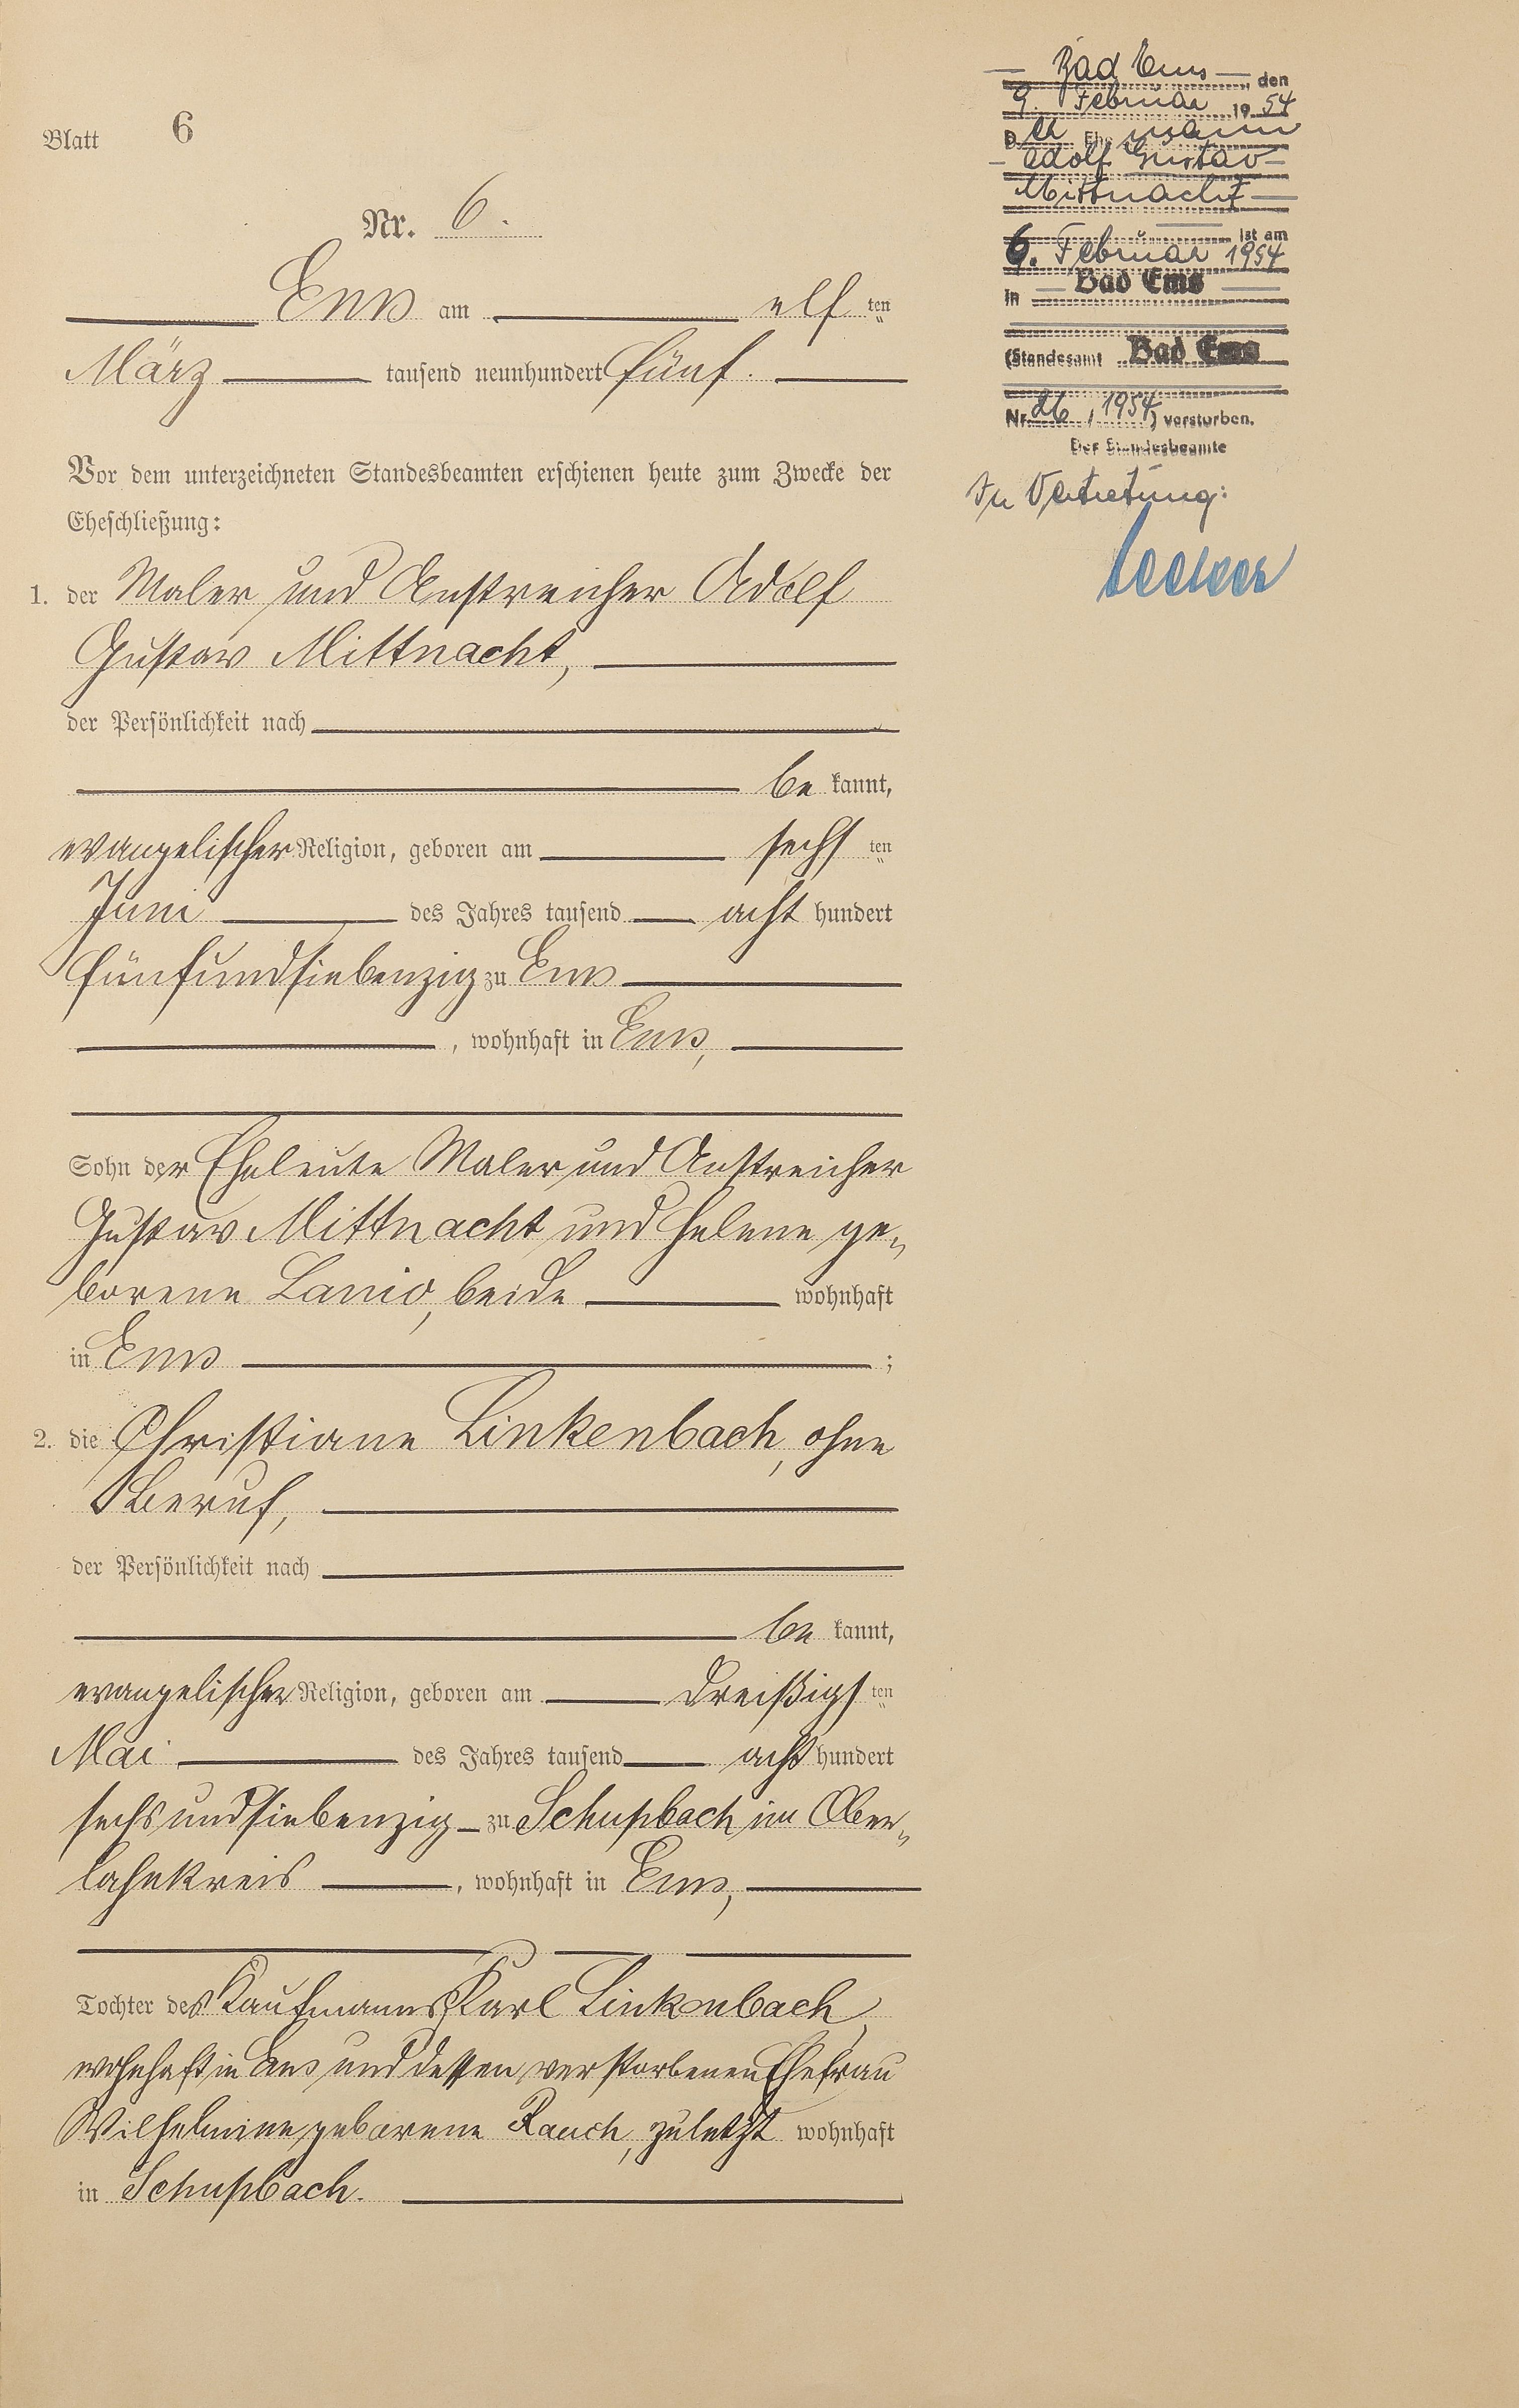 Blatt 6
Nr. 6.
Ems am elf ten
März tausend neunhundert fünf.
Vor dem unterzeichneten Standesbeamten erschienen heute zum Zwecke der
Eheschließung:
1. der Maler und Anstreicher Adolf
Gustav Mittnacht,
der Persönlichkeit nach
be kannt,
evangelischer Religion, geboren am sechs ten
Juni des Jahres tausend acht hundert
fünfundsiebenzig zu Ems
, wohnhaft in Ems,
Sohn der Eheleute Maler und Anstreicher
Gustav Mittnacht und Helene ge„
borene Lanio, beide wohnhaft
in Ems ;
2. die Christiane Linkenbach, ohne
Beruf,
der Persönlichkeit nach
be kannt,
evangelischer Religion, geboren am dreißigs ten
Mai des Jahres tausend acht hundert
sechsundsiebenzig zu Schupbach im Ober„
lahnkreis , wohnhaft in Ems,
Tochter des Kaufmanns Karl Linkenbach,
wohnhaft in Ems und dessen verstorbenen Ehefrau
Wilhelmine geborene Rauch, zuletzt wohnhaft
in Schupbach.
Bad Ems, den
9. Februar 1954
Der Ehemann
Adolf Gustav
Mittnacht
ist am
6. Februar 1954
in Bad Ems
(Standesamt Bad Ems
Nr. 26, 1954) verstorben.
Der Standesbeamte
In Vertretung: